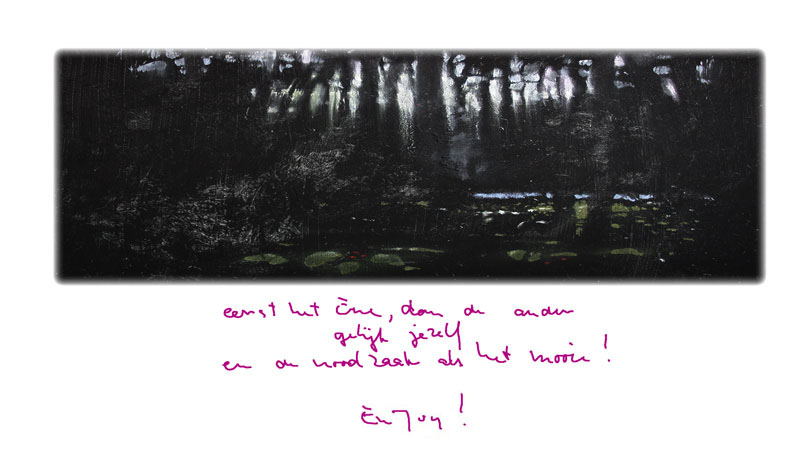 eerst het Ène, dan de ander
gelijk jezelf
en de noodzaak als het mooie!
Ènjoy!